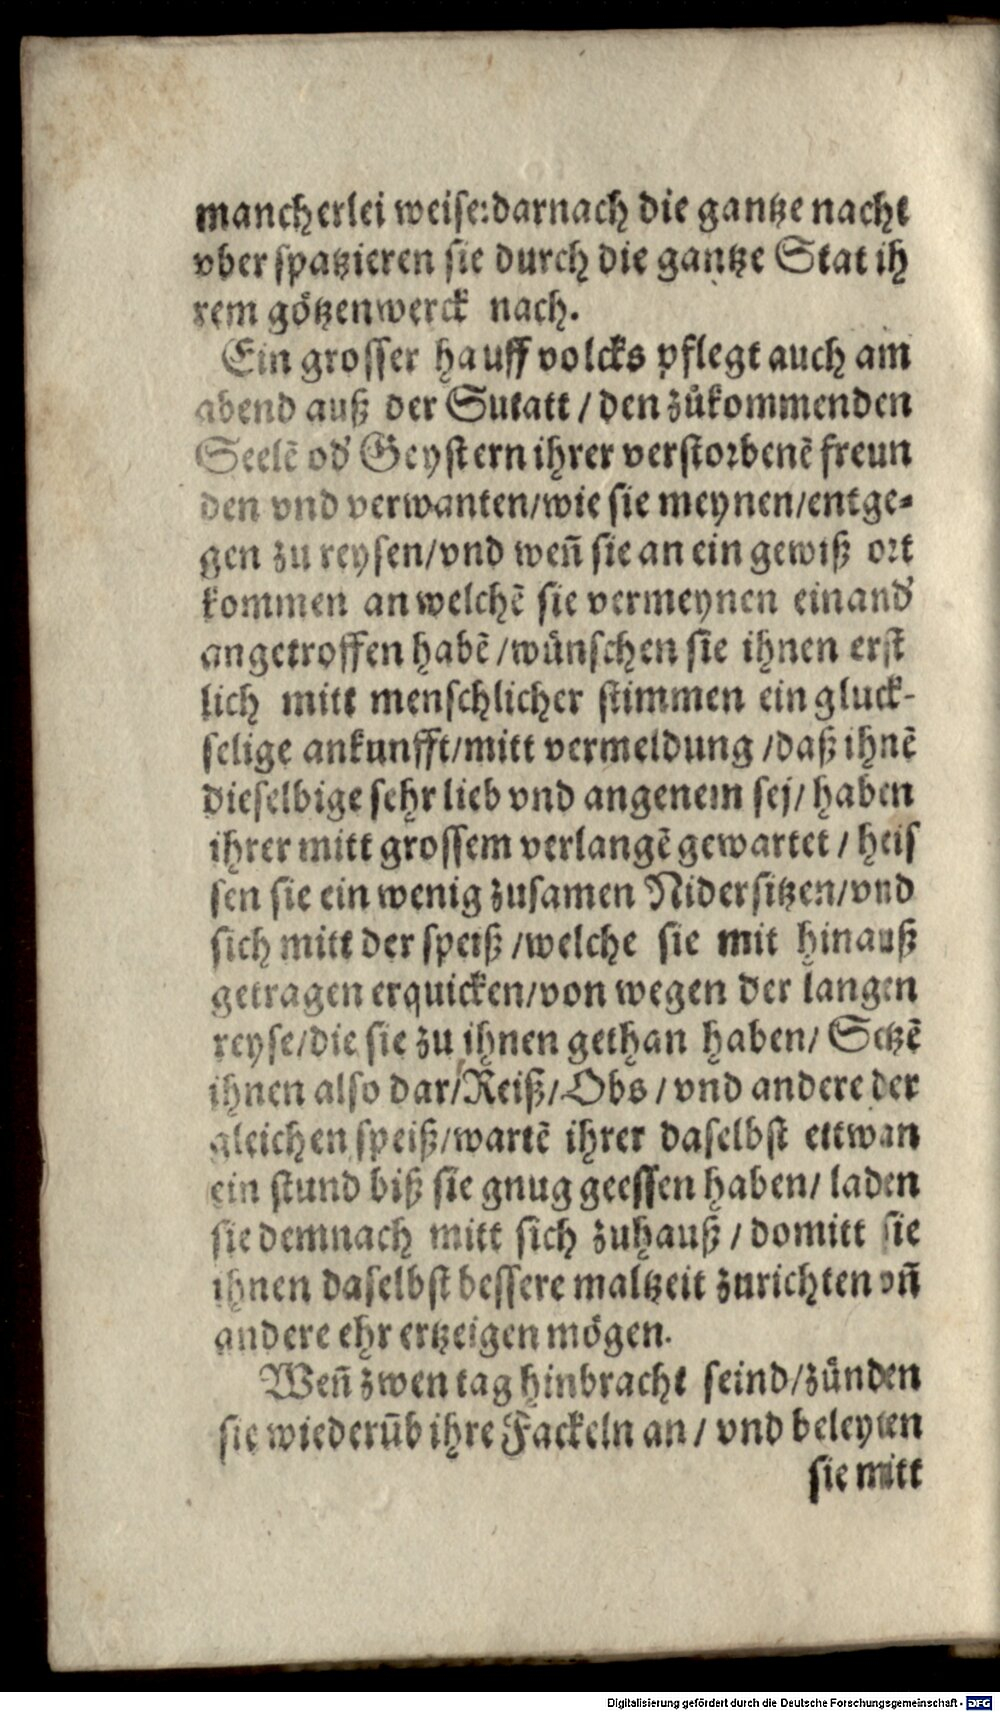 mancherlei weise:darnach die gantze nacht
vber spatzieren sie durch die gantze Stat ih
rem götzenwerck nach.
Ein grosser hauff volcks pflegt auch am
abend auß der Sutatt / den zůkommenden
Seelē od' Geystern ihrer verstorbenē freun
den vnd verwanten/wie sie meynen/entge-
gen zu reysen/vnd weñ sie an ein gewiß ort
kommen an welchē sie vermeynen einand'
angetroffen habē /wünschen sie ihnen erst
lich mitt menschlicher stimmen ein gluck-
selige ankunfft/mitt vermeldung /daß ihnē
dieselbige sehr lieb vnd angenem sej/ haben
ihrer mitt grossem verlangē gewartet / heis
sen sie ein wenig zusamen Nidersitzen/vnd
sich mitt der speiß /welche sie mit hinauß
getragen erquicken/von wegen der langen
reyse/die sie zu ihnen gethan haben/ Setzē
ihnen also dar/Reiß/Obs / vnd andere der
gleichen speiß/wartē ihrer daselbst ettwan
ein stund biß sie gnug geessen haben/ laden
sie demnach mitt sich zuhauß / domitt sie
ihnen daselbst bessere maltzeit zurichten vñ
andere ehr ertzeigen mögen.
Weñ zwen tag hinbracht seind/zünden
sie wiederūb ihre Fackeln an / vnd beleyten
sie mitt
Digitalisierung gefördert durch die Deutsche Forschungsgemeinschaft - DFG